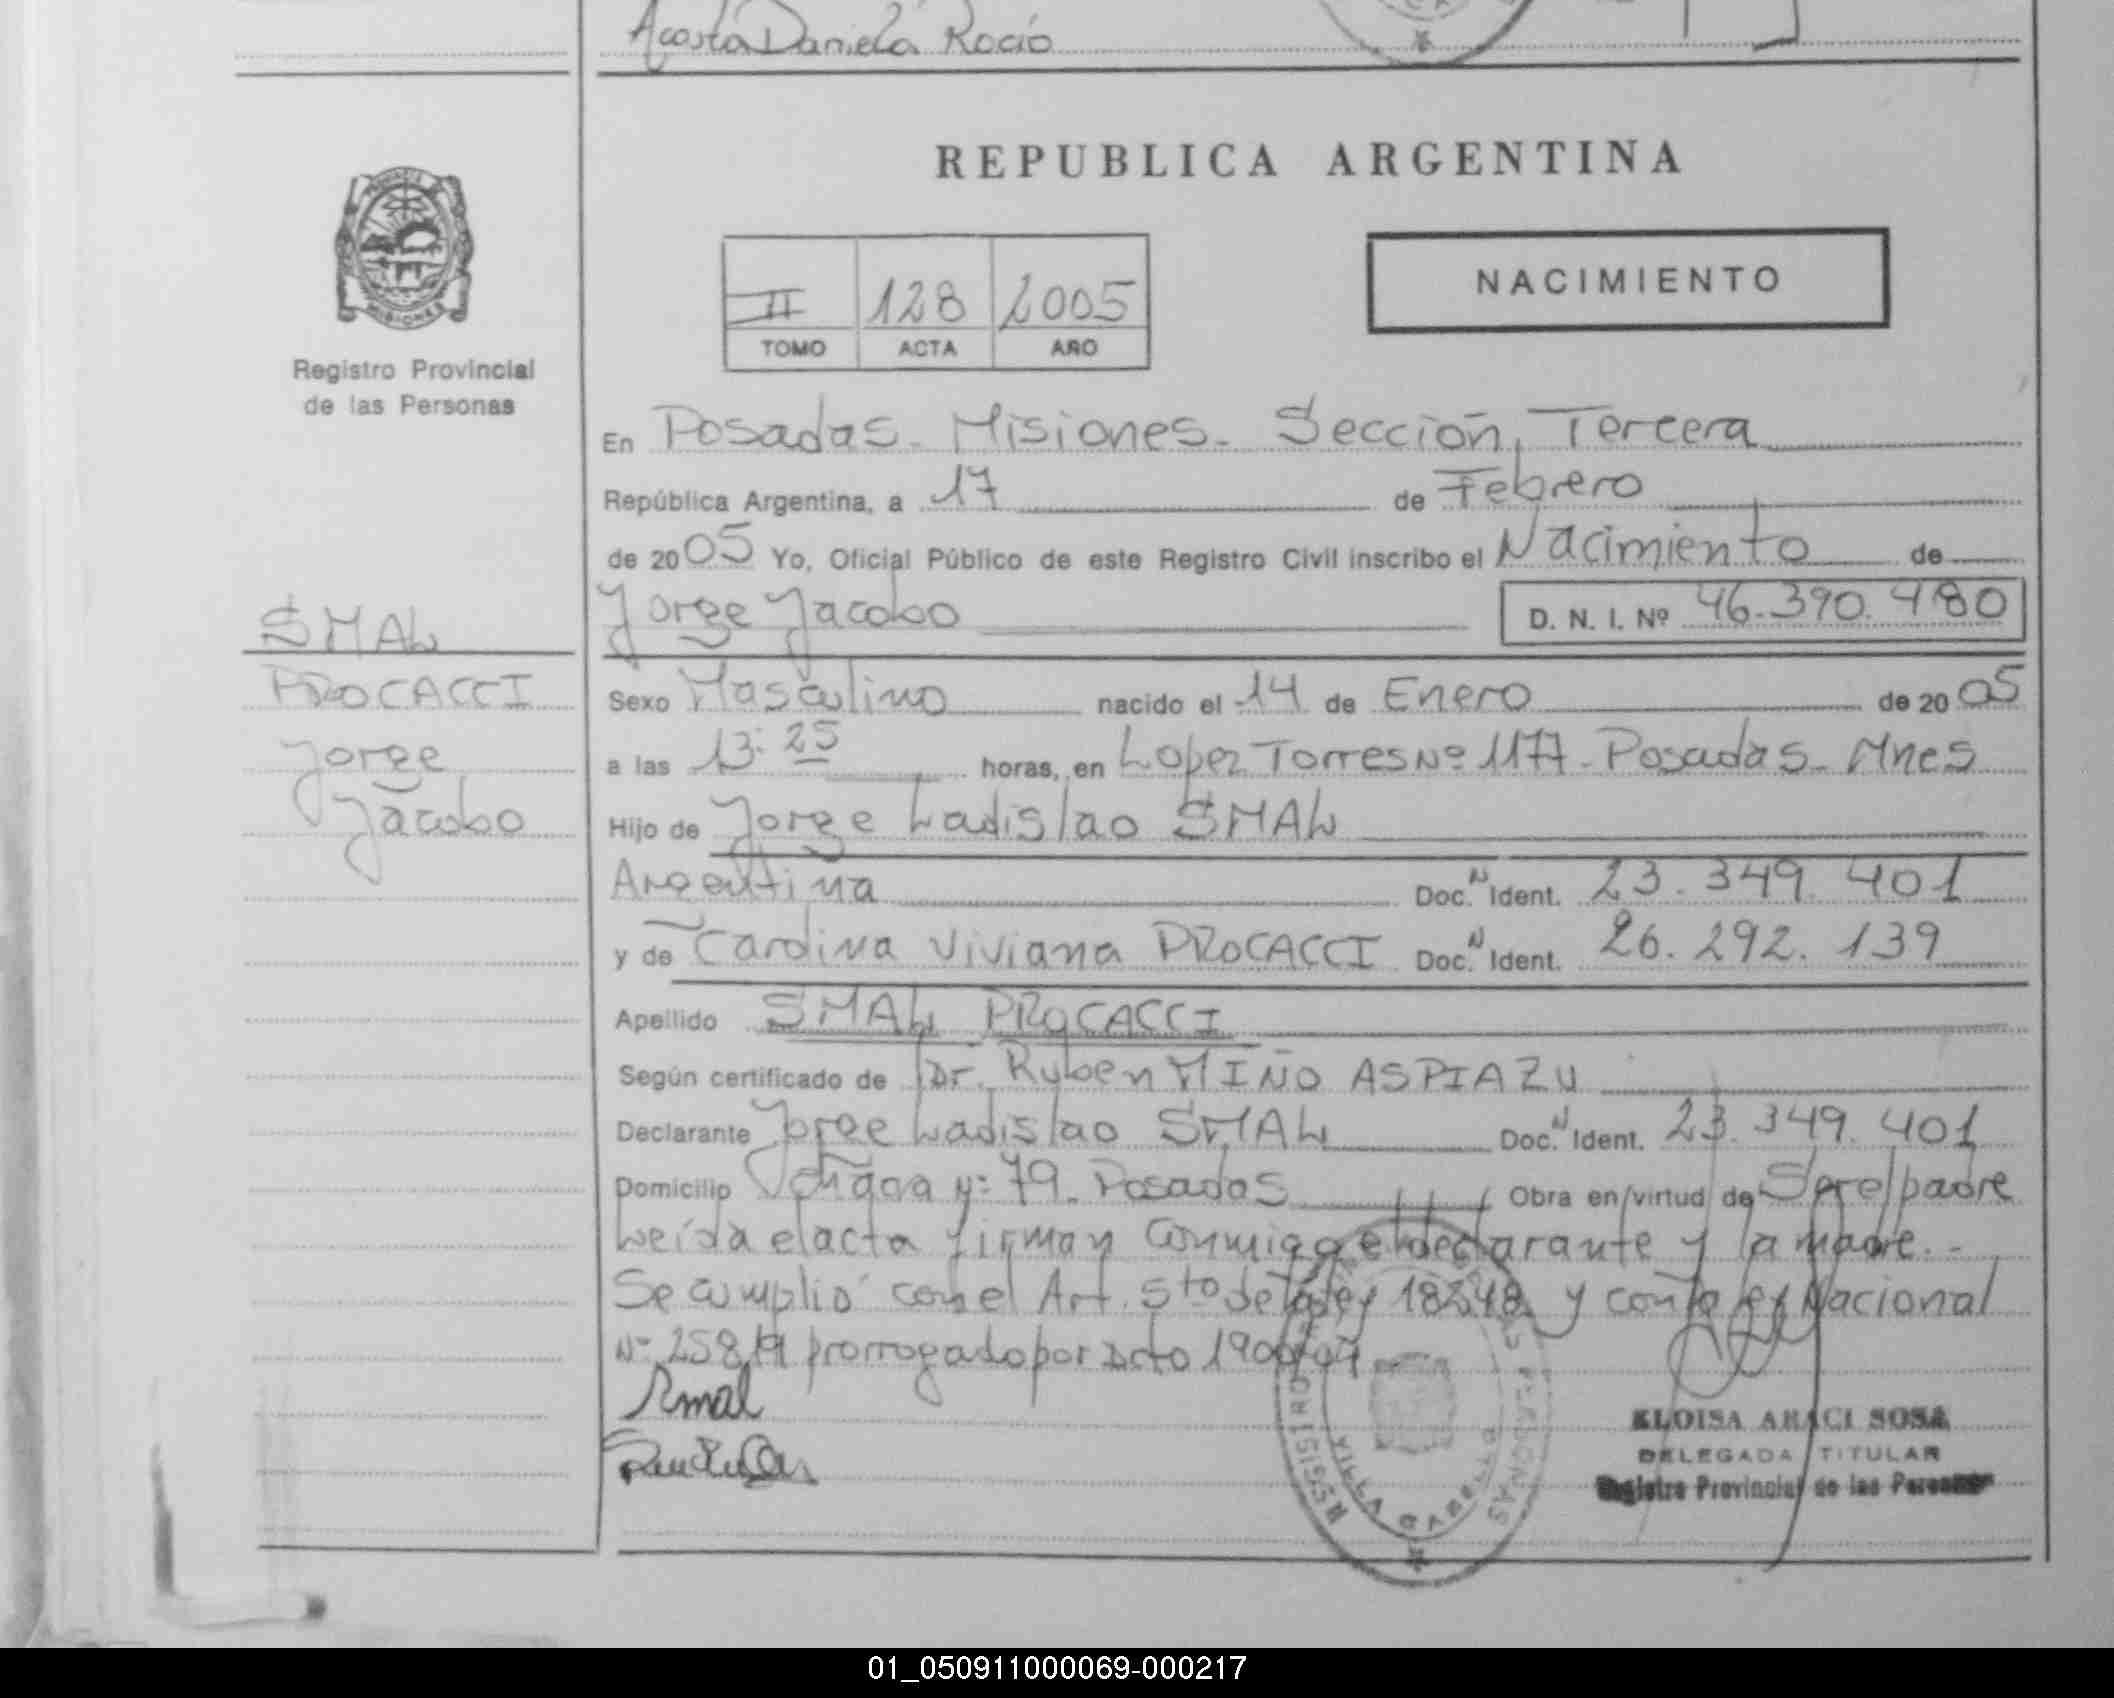 Acosta Daniela Rocio
REPUBLICA ARGENTINA
NACIMIENTO
II 128 2005
TOMO ACTA AÑO
PROVINCIA DE
MISIONES
Registro Provincial
de las Personas
En Posadas - Misiones - Sección Tercera
República Argentina, a 17 de Febrero
de 2005 Yo, Oficial Público de este Registro Civil inscribo el Nacimiento de
Jorge Jacobo D. N. I. Nº 46.390.480
SMAL
PROCACCI
Jorge
Jacobo
Sexo Masculino nacido el 14 de Enero de 2005
a las 13:25 horas, en Lopez Torres Nº 1177 - Posadas - Mnes
Hijo de Jorge Ladislao SMAL
Argentina Doc. N Ident. 23.349.401
y de Carolina Viviana PROCACCI Doc. N Ident. 26.292.139
Apellido SMAL PROCACCI
Según certificado de Dr. Ruben MIÑO ASPIAZU
Declarante Jorge Ladislao SMAL Doc. N Ident. 23.349.401
Domicilio 79 - Posadas Obra en virtud de Ser el padre
Leída el acta firman conmigo el declarante y la madre.-
Se cumplió con el Art. 5to de la ley 18248 y con la ley Nacional
Nº prorrogado por Dcto
Smal
REGISTRO
PERSONAS
VILLA CABELLO
ELOISA ARACI SOSA
DELEGADA TITULAR
Registro Provincial de las Personas
01_050911000069-000217